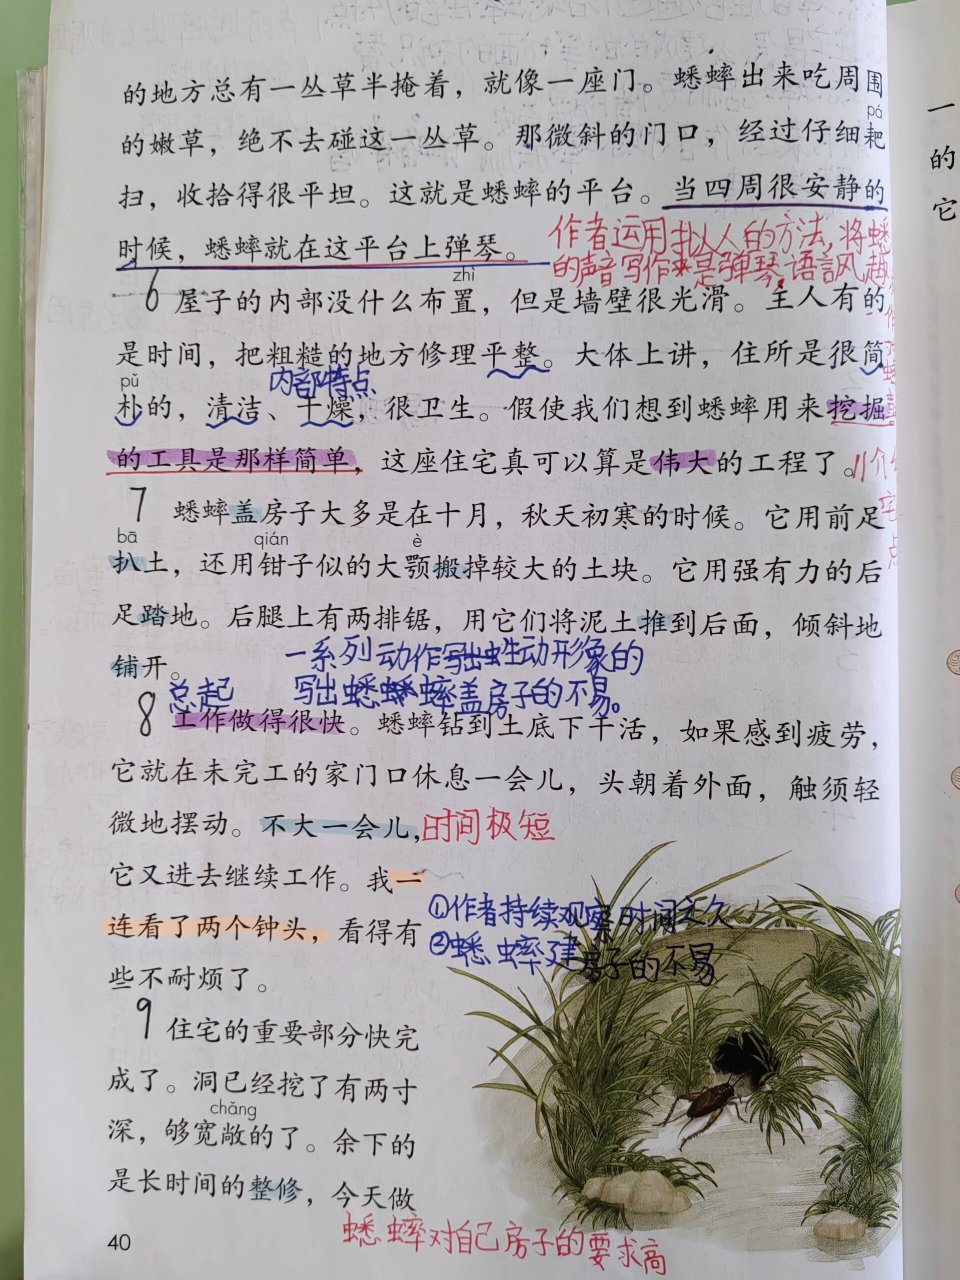 的地方总有一丛草半掩着，就像一座门。蟋蟀出来吃周围
pá
的嫩草，绝不去碰这一丛草。那微斜的门口，经过仔细耙
扫，收拾得很平坦。这就是蟋蟀的平台。当四周很安静的
时候，蟋蟀就在这平台上弹琴。
作者运用拟人的方法，将蟋
的声音写作是弹琴，语言风趣
zhì
6 屋子的内部没什么布置，但是墙壁很光滑。主人有的
是时间，把粗糙的地方修理平整。大体上讲，住所是很简
pǔ
内部特点
朴的，清洁、干燥，很卫生。假使我们想到蟋蟀用来挖掘
的工具是那样简单，这座住宅真可以算是伟大的工程了。
7 蟋蟀盖房子大多是在十月，秋天初寒的时候。它用前足
bā qián è
扒土，还用钳子似的大颚搬掉较大的土块。它用强有力的后
足踏地。后腿上有两排锯，用它们将泥土推到后面，倾斜地
铺开。
一系列动作写出生动形象的
写出蟋蟀盖房子的不易。
总起
8 工作做得很快。蟋蟀钻到土底下干活，如果感到疲劳，
它就在未完工的家门口休息一会儿，头朝着外面，触须轻
微地摆动。不大一会儿，时间极短
它又进去继续工作。我一
连看了两个钟头，看得有
些不耐烦了。
①作者持续观察时间之久
②蟋蟀建房子的不易
9 住宅的重要部分快完
成了。洞已经挖了有两寸
chǎng
深，够宽敞的了。余下的
是长时间的整修，今天做
蟋蟀对自己房子的要求高
40
一
的
它